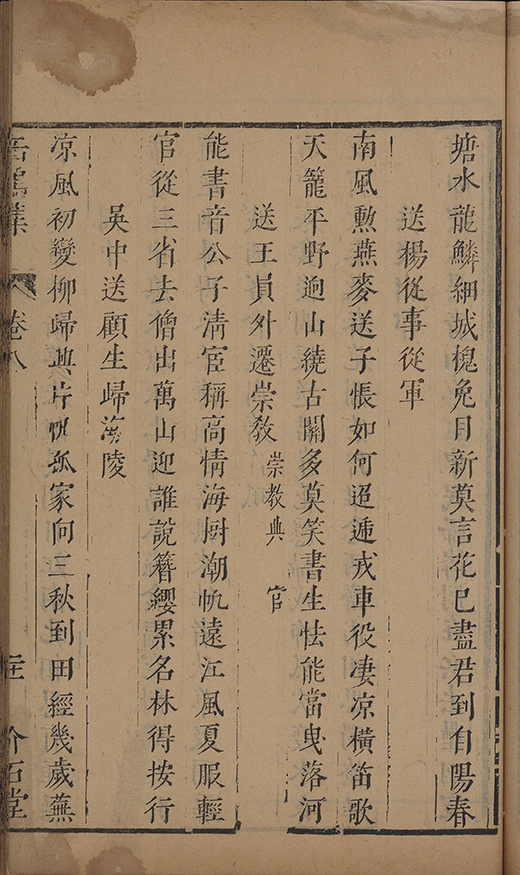 塘水龍鱗細城槐免目新莫言花已盡君到自陽春
送楊從事從軍
南風勲燕麥送子悵如何迢遞戎車役凄凉橫笛歌
天籠平野迥山繞古關多莫笑書生怯能當曳落河
送王員外遷崇敎 崇教典 官
能書音公子清宦稱高情海厨潮㠶遠江風夏服輕
官從三省去僧出萬山迎誰說簪纓累名林得按行
吳中送顧生歸海陵
凉風初變柳歸興片帆孤家向三秋到田經幾歲蕪
卷八
介石堂